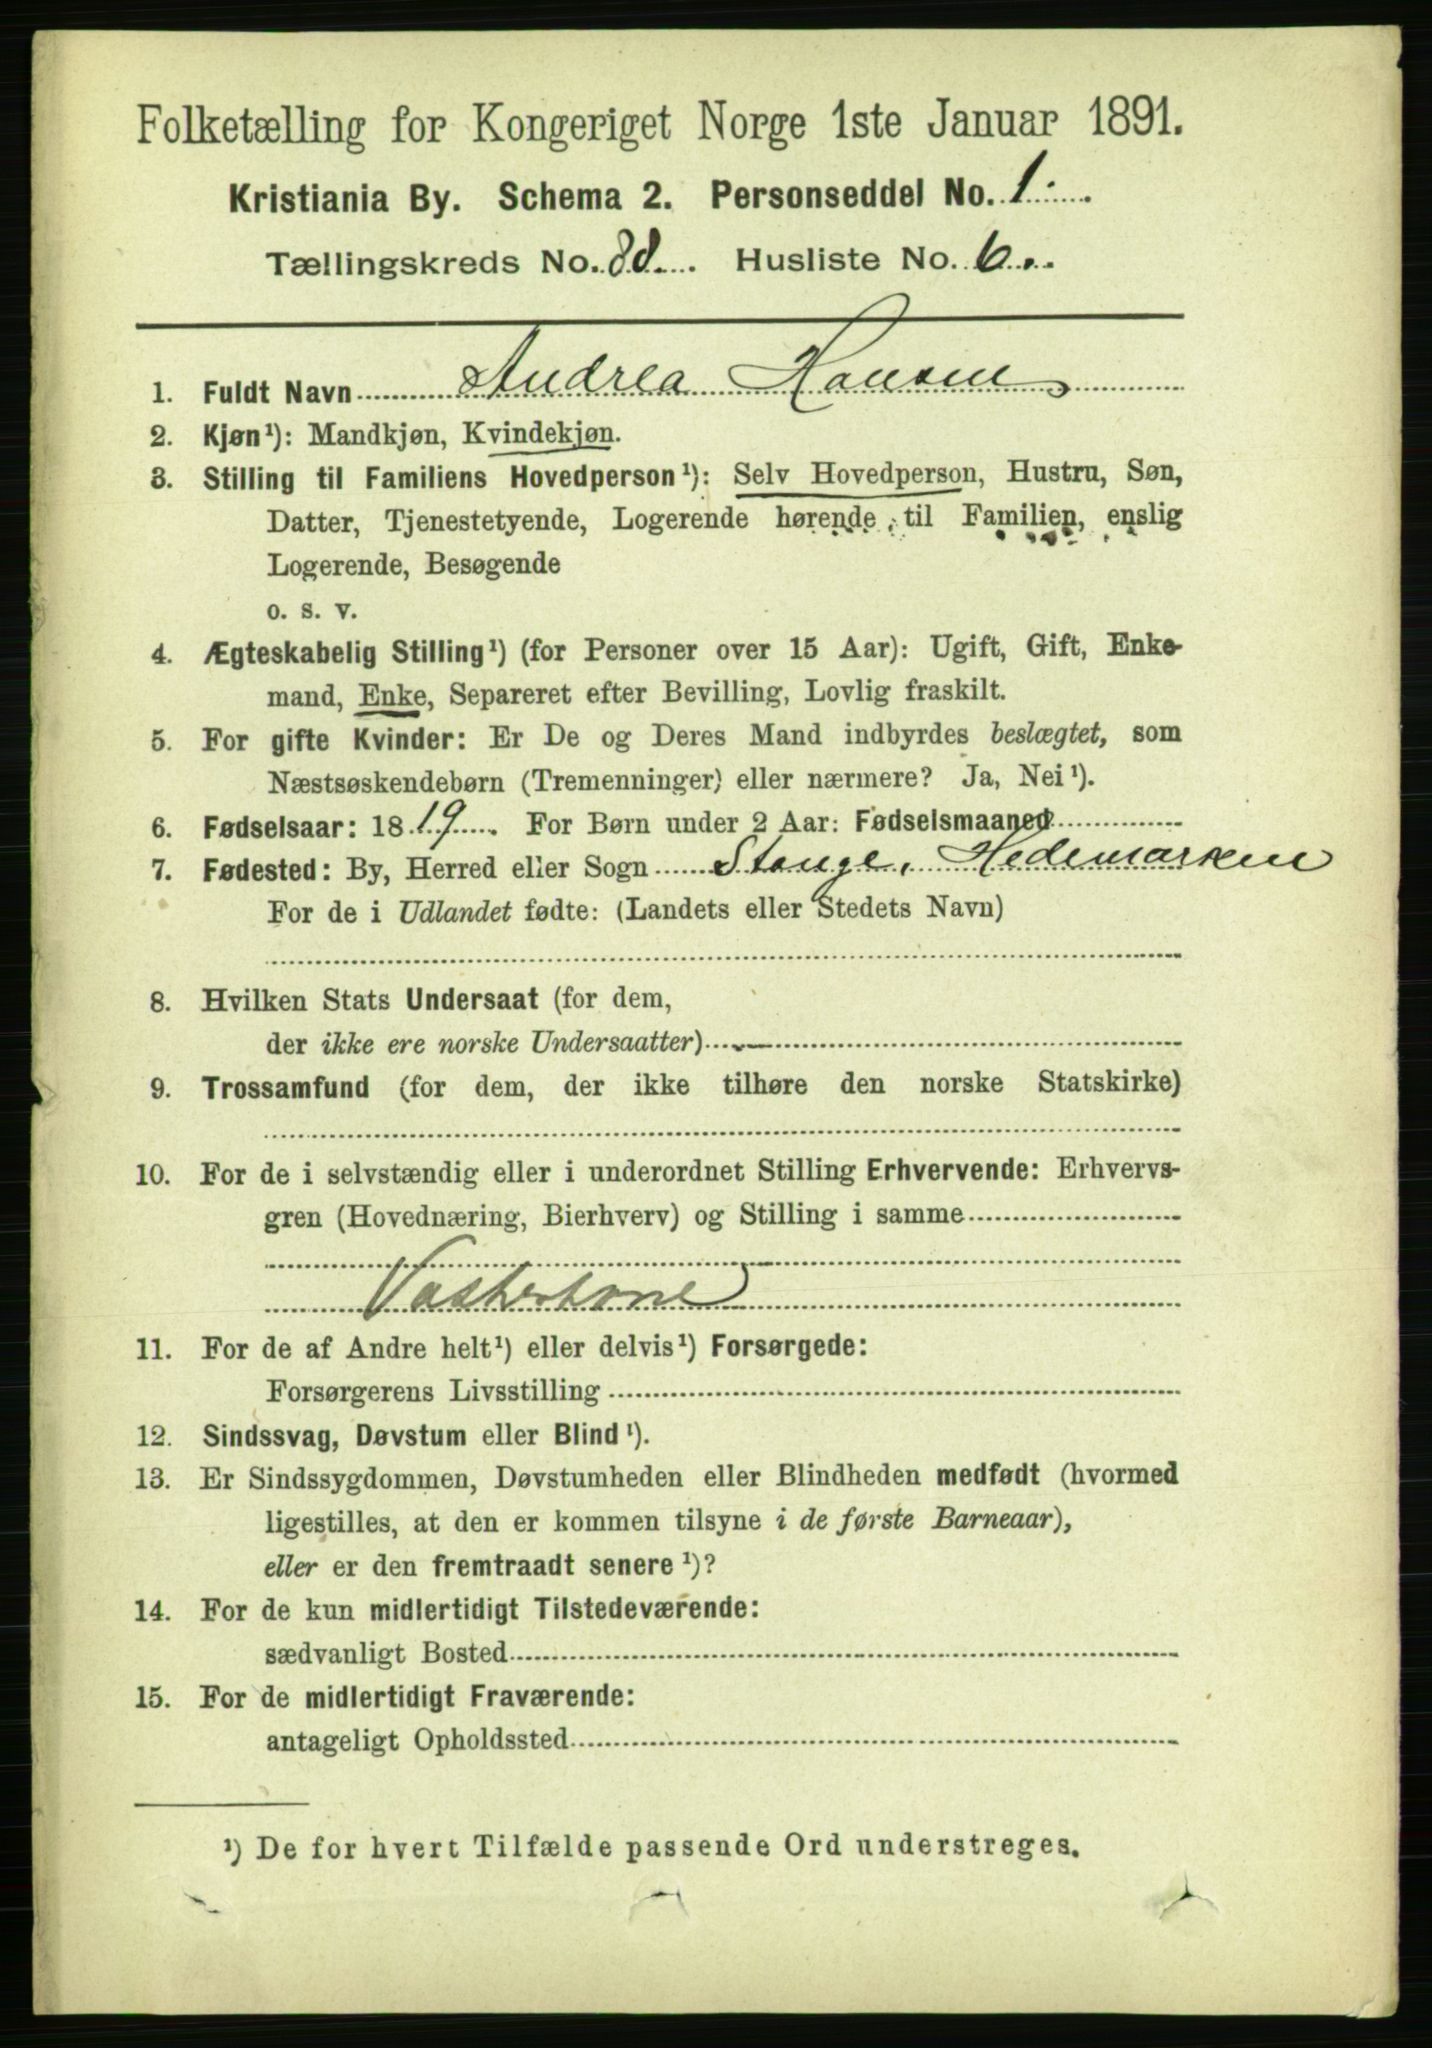 Folketælling for Kongeriget Norge 1ste Januar 1891.
Kristiania By. Schema 2. Personseddel No. 1.
Tællingskreds No. 88. Husliste No. 6.
1. Fuldt Navn Andrea Hansen
2. Kjøn¹): Mandkjøn, Kvindekjøn.
3. Stilling til Familiens Hovedperson¹): Selv Hovedperson, Hustru, Søn,
Datter, Tjenestetyende, Logerende hørende til Familien, enslig
Logerende, Besøgende
o. s. v.
4. Ægteskabelig Stilling¹) (for Personer over 15 Aar): Ugift, Gift, Enke-
mand, Enke, Separeret efter Bevilling, Lovlig fraskilt.
5. For gifte Kvinder: Er De og Deres Mand indbyrdes beslægtet, som
Næstsøskendebørn (Tremenninger) eller nærmere? Ja, Nei¹).
6. Fødselsaar: 1819. For Børn under 2 Aar: Fødselsmaaned
7. Fødested: By, Herred eller Sogn Stange, Hedemarken
For de i Udlandet fødte: (Landets eller Stedets Navn)
8. Hvilken Stats Undersaat (for dem,
der ikke ere norske Undersaatter)
9. Trossamfund (for dem, der ikke tilhøre den norske Statskirke)
10. For de i selvstændig eller i underordnet Stilling Erhvervende: Erhvervs-
gren (Hovednæring, Bierhverv) og Stilling i samme
Vaskerkone
11. For de af Andre helt¹) eller delvis¹) Forsørgede:
Forsørgerens Livsstilling
12. Sindssvag, Døvstum eller Blind¹).
13. Er Sindssygdommen, Døvstumheden eller Blindheden medfødt (hvormed
ligestilles, at den er kommen tilsyne i de første Barneaar),
eller er den fremtraadt senere¹)?
14. For de kun midlertidigt Tilstedeværende:
sædvanligt Bosted
15. For de midlertidigt Fraværende:
antageligt Opholdssted
¹) De for hvert Tilfælde passende Ord understreges.